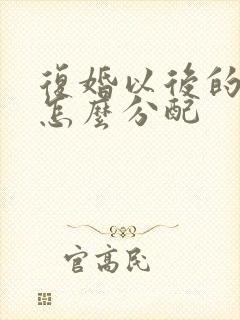 復婚以後的
怎麼分配
官高民